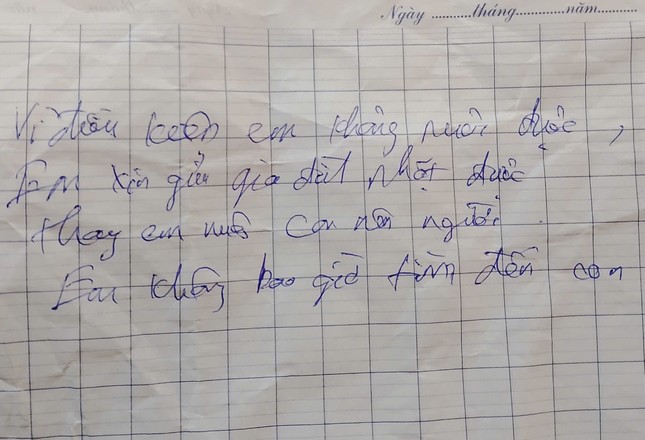 Ngày ..........tháng.............năm..........
Vì điều kiện em không nuôi được,
Em xin gửi gia đình nhặt được
thay em nuôi con nên người.
Em không bao giờ tìm đến con